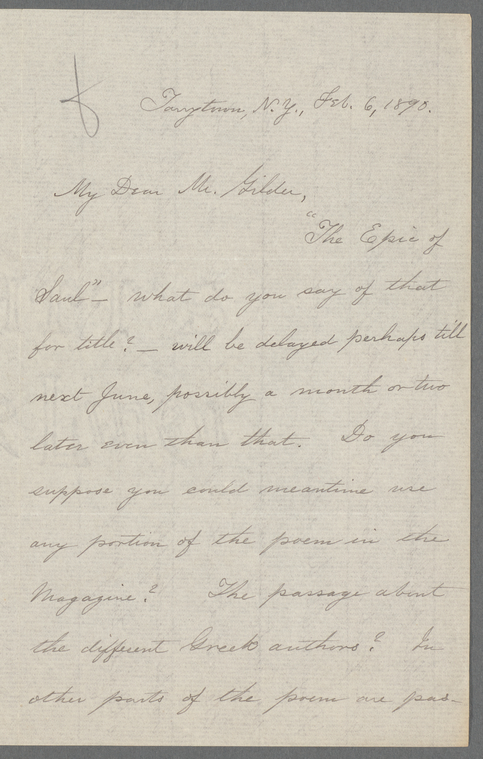 Tarrytown, N.Y., Feb. 6, 1890.
My Dear Mr. Gilder,
"The Epic of
Saul" — what do you say of that
for title? — will be delayed perhaps till
next June, possibly a month or two
later even than that. Do you
suppose you could meantime use
any portion of the poem in the
Magazine? The passage about
the different Greek authors? In
other parts of the poem are pas-